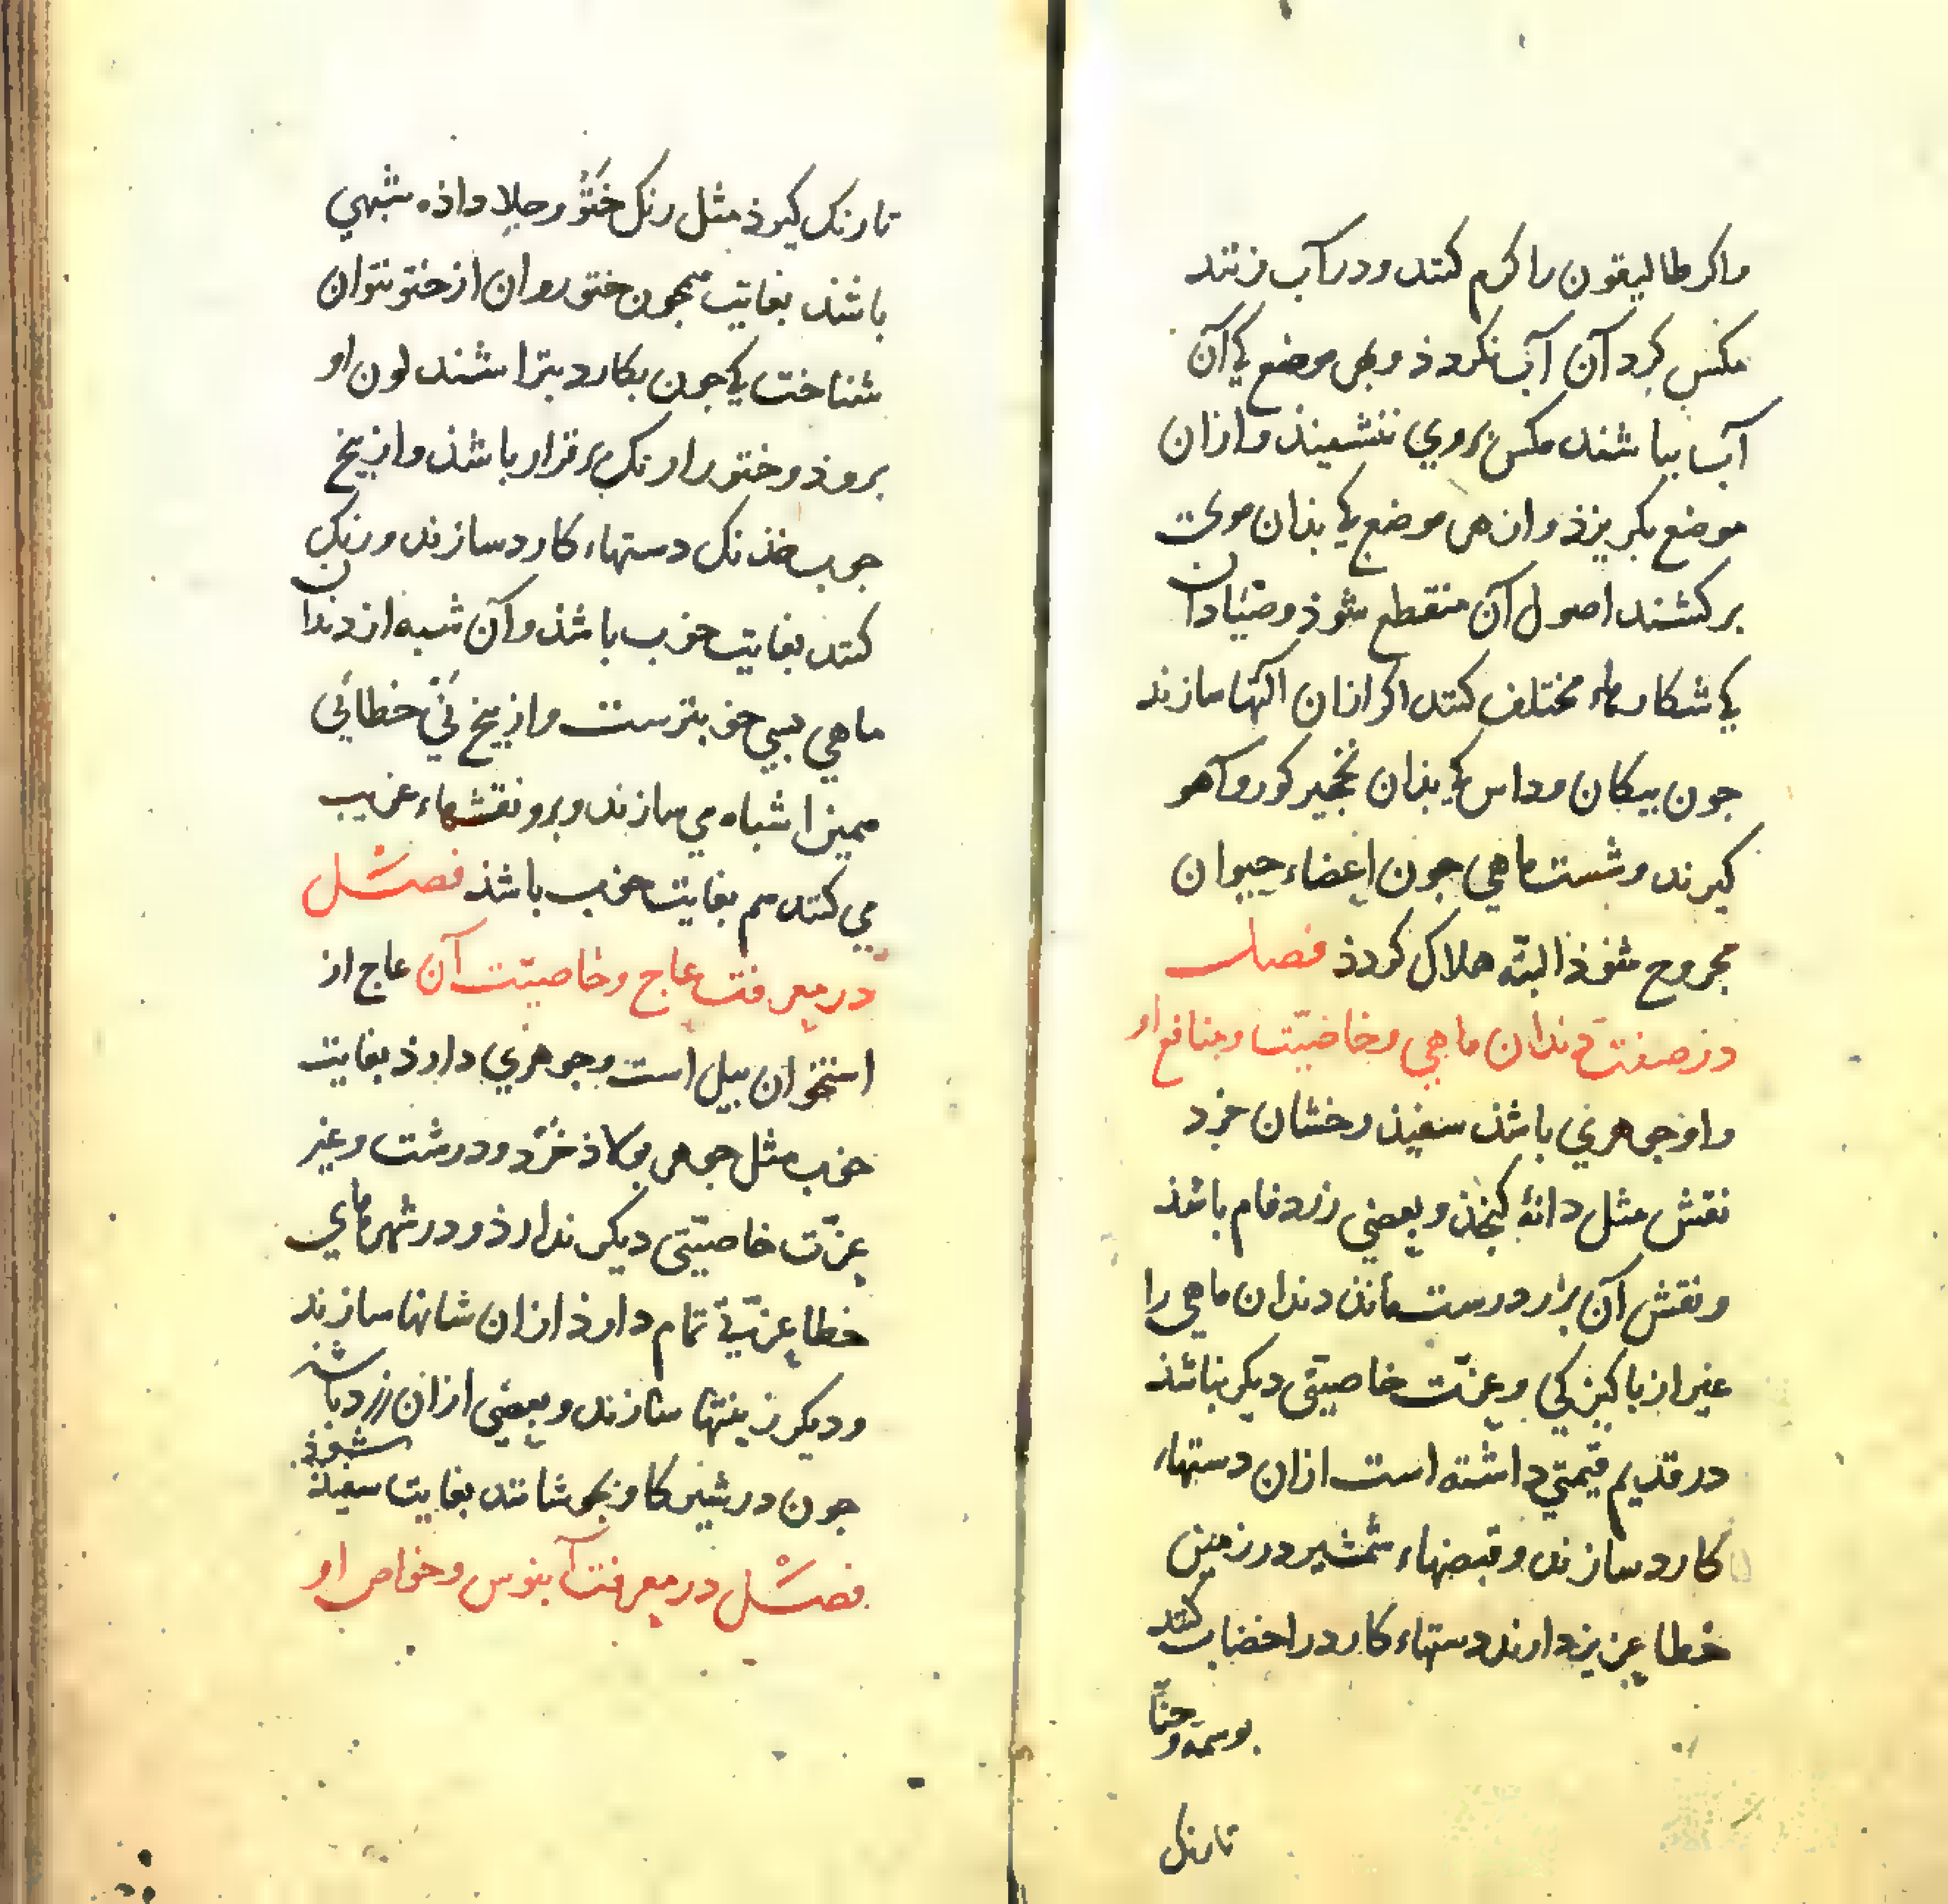 واکر طالیقون را کرم کنند و در آب زنند
مکس کرد آن آب نکردذ و بهر موضع کی آن
آب بباشند مکس بروی ننشیند و ازان
موضع بکریزذ و از هر موضع کی بذان موی
برکشند اصول آن منقطع شوذ و صیّادان
کی شکارهاء مختلف کنند اکر ازان آلتها سازند
جون بیکان و داس کی بذان نخجیر کور و آهو
کیرند و شست ماهی جون اعضاء حیوان
مجروح شوذ البته هلاک کردذ فصل
در صفت دندان ماهی و خاصیّت و منافع او
و او جوهری باشذ سفیذ رخشان خرد
نقش مثل دانهٔ کنجذ و بعضی زرد فام باشذ
و نقش آن براز درست ماند دندان ماهی را
غیر از باکیزکی و عزّت خاصیّتی دیکر نباشذ
در قدیم قیمتی داشته است ازان دستهاء
کارد سازند و قبضهاء شمشیر در زمین
خطا عزیز دارند دستهاء کارد را خضاب کنند
بوسمه و حنّا
تارنک
تا رنک کیرذ مثل رنک ختو و جلا داذه شبهی
باشذ بغایت همجون ختو و آن از ختو نتوان
شناخت کی جون بکارد بتراشند لون او
بروذ و ختو را رنک برقرار باشذ و از بیخ
جوب خذنک دستهاء کارد سازند و رنک
کنند بغایت خوب باشذ و آن شبه از دندان
ماهی بسی خوبترست و از بیخ نی خطائی
همین اشباه می سازند و برو نقشهاء غریب
می کنند هم بغایت خوب باشذ فصل
در معرفت عاج و خاصیّت آن عاج از
استخوان بیل است و جوهری دارد بغایت
خوب مثل جوهر بولاذ خرد و درشت و غیر
عزّت خاصیّتی دیکر ندارذ و در شهرهای
خطا عزّتی تمام دارذ ازان شانها سازند
و دیکر زینتها سازند و بعضی ازان زرد باشذ
جون در شیر کاو بجوشانند بغایت سفیذ شوذ
فصل در معرفت آبنوس و خواص او